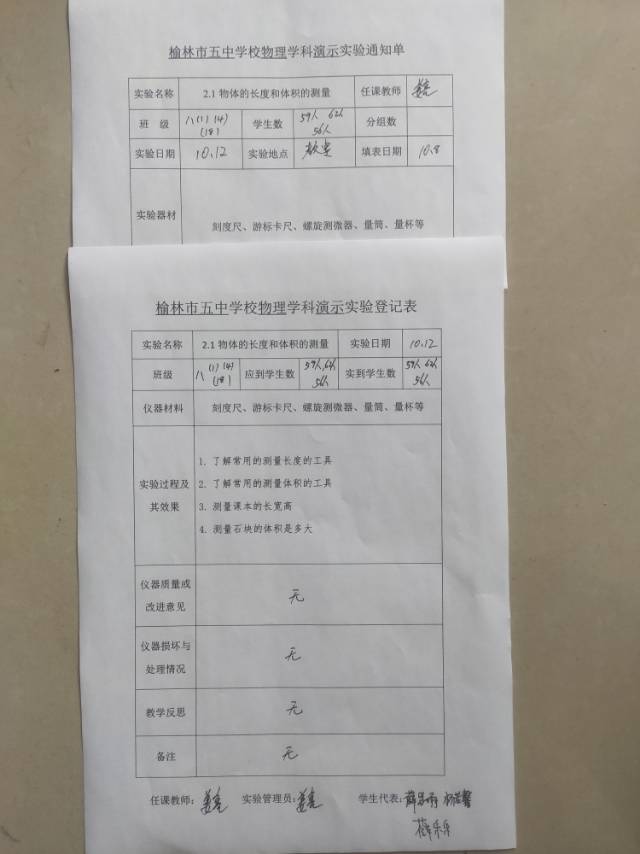 榆林市五中学校物理学科演示实验通知单
实验名称 2.1 物体的长度和体积的测量 任课教师
班 级 八(1) (4) (18) 学生数 59人 62人 56人 分组数
实验日期 10.12 实验地点 教室 填表日期 10.8
实验器材 刻度尺、游标卡尺、螺旋测微器、量筒、量杯等
榆林市五中学校物理学科演示实验登记表
实验名称 2.1 物体的长度和体积的测量 实验日期 10.12
班级 八 (1) (4) (18) 应到学生数 59人,62人 56人 实到学生数 59人 62人 56人
仪器材料 刻度尺、游标卡尺、螺旋测微器、量筒、量杯等
实验过程及其效果
1. 了解常用的测量长度的工具
2. 了解常用的测量体积的工具
3. 测量课本的长宽高
4. 测量石块的体积是多大
仪器质量或改进意见 无
仪器损坏与处理情况 无
教学反思 无
备注 无
任课教师: 实验管理员: 学生代表:
薛乐乐